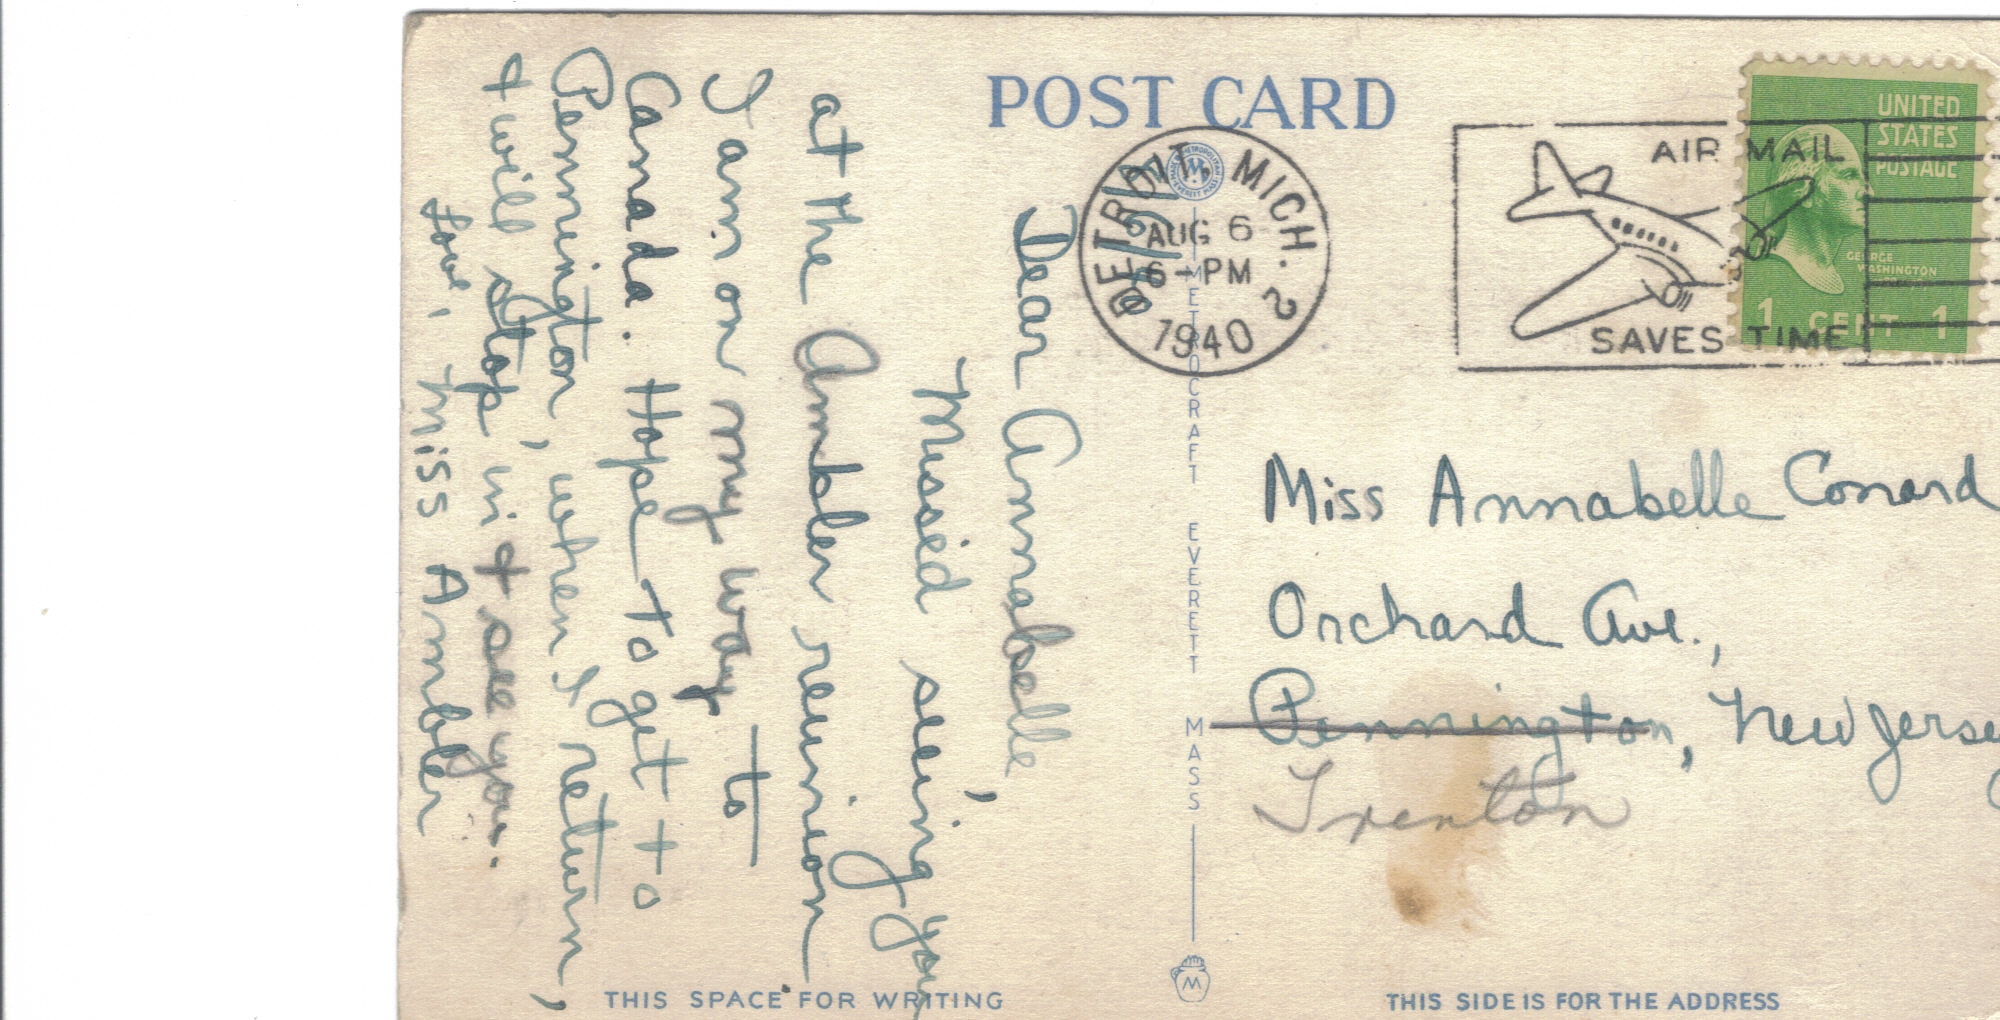 POST CARD
8/6/40
Dear Annabelle,
Missed seeing you
at the Ambler reunion
I am on my way to
Canada. Hope to get to
Pennington, when I return,
+ will stop in + see you.
Love, Miss Ambler
THIS SPACE FOR WRITING
MADE BY METROPOLITAN
M
EVERETT MASS.
METROCRAFT EVERETT MASS
M
DETROIT, MICH. 2
AUG 6
6-PM
1940
AIR MAIL
SAVES TIME
UNITED
STATES
POSTAGE
GEORGE
WASHINGTON
1 CENT 1
Miss Annabelle Conard
Orchard Ave.,
Pennington, New Jersey
Trenton
THIS SIDE IS FOR THE ADDRESS